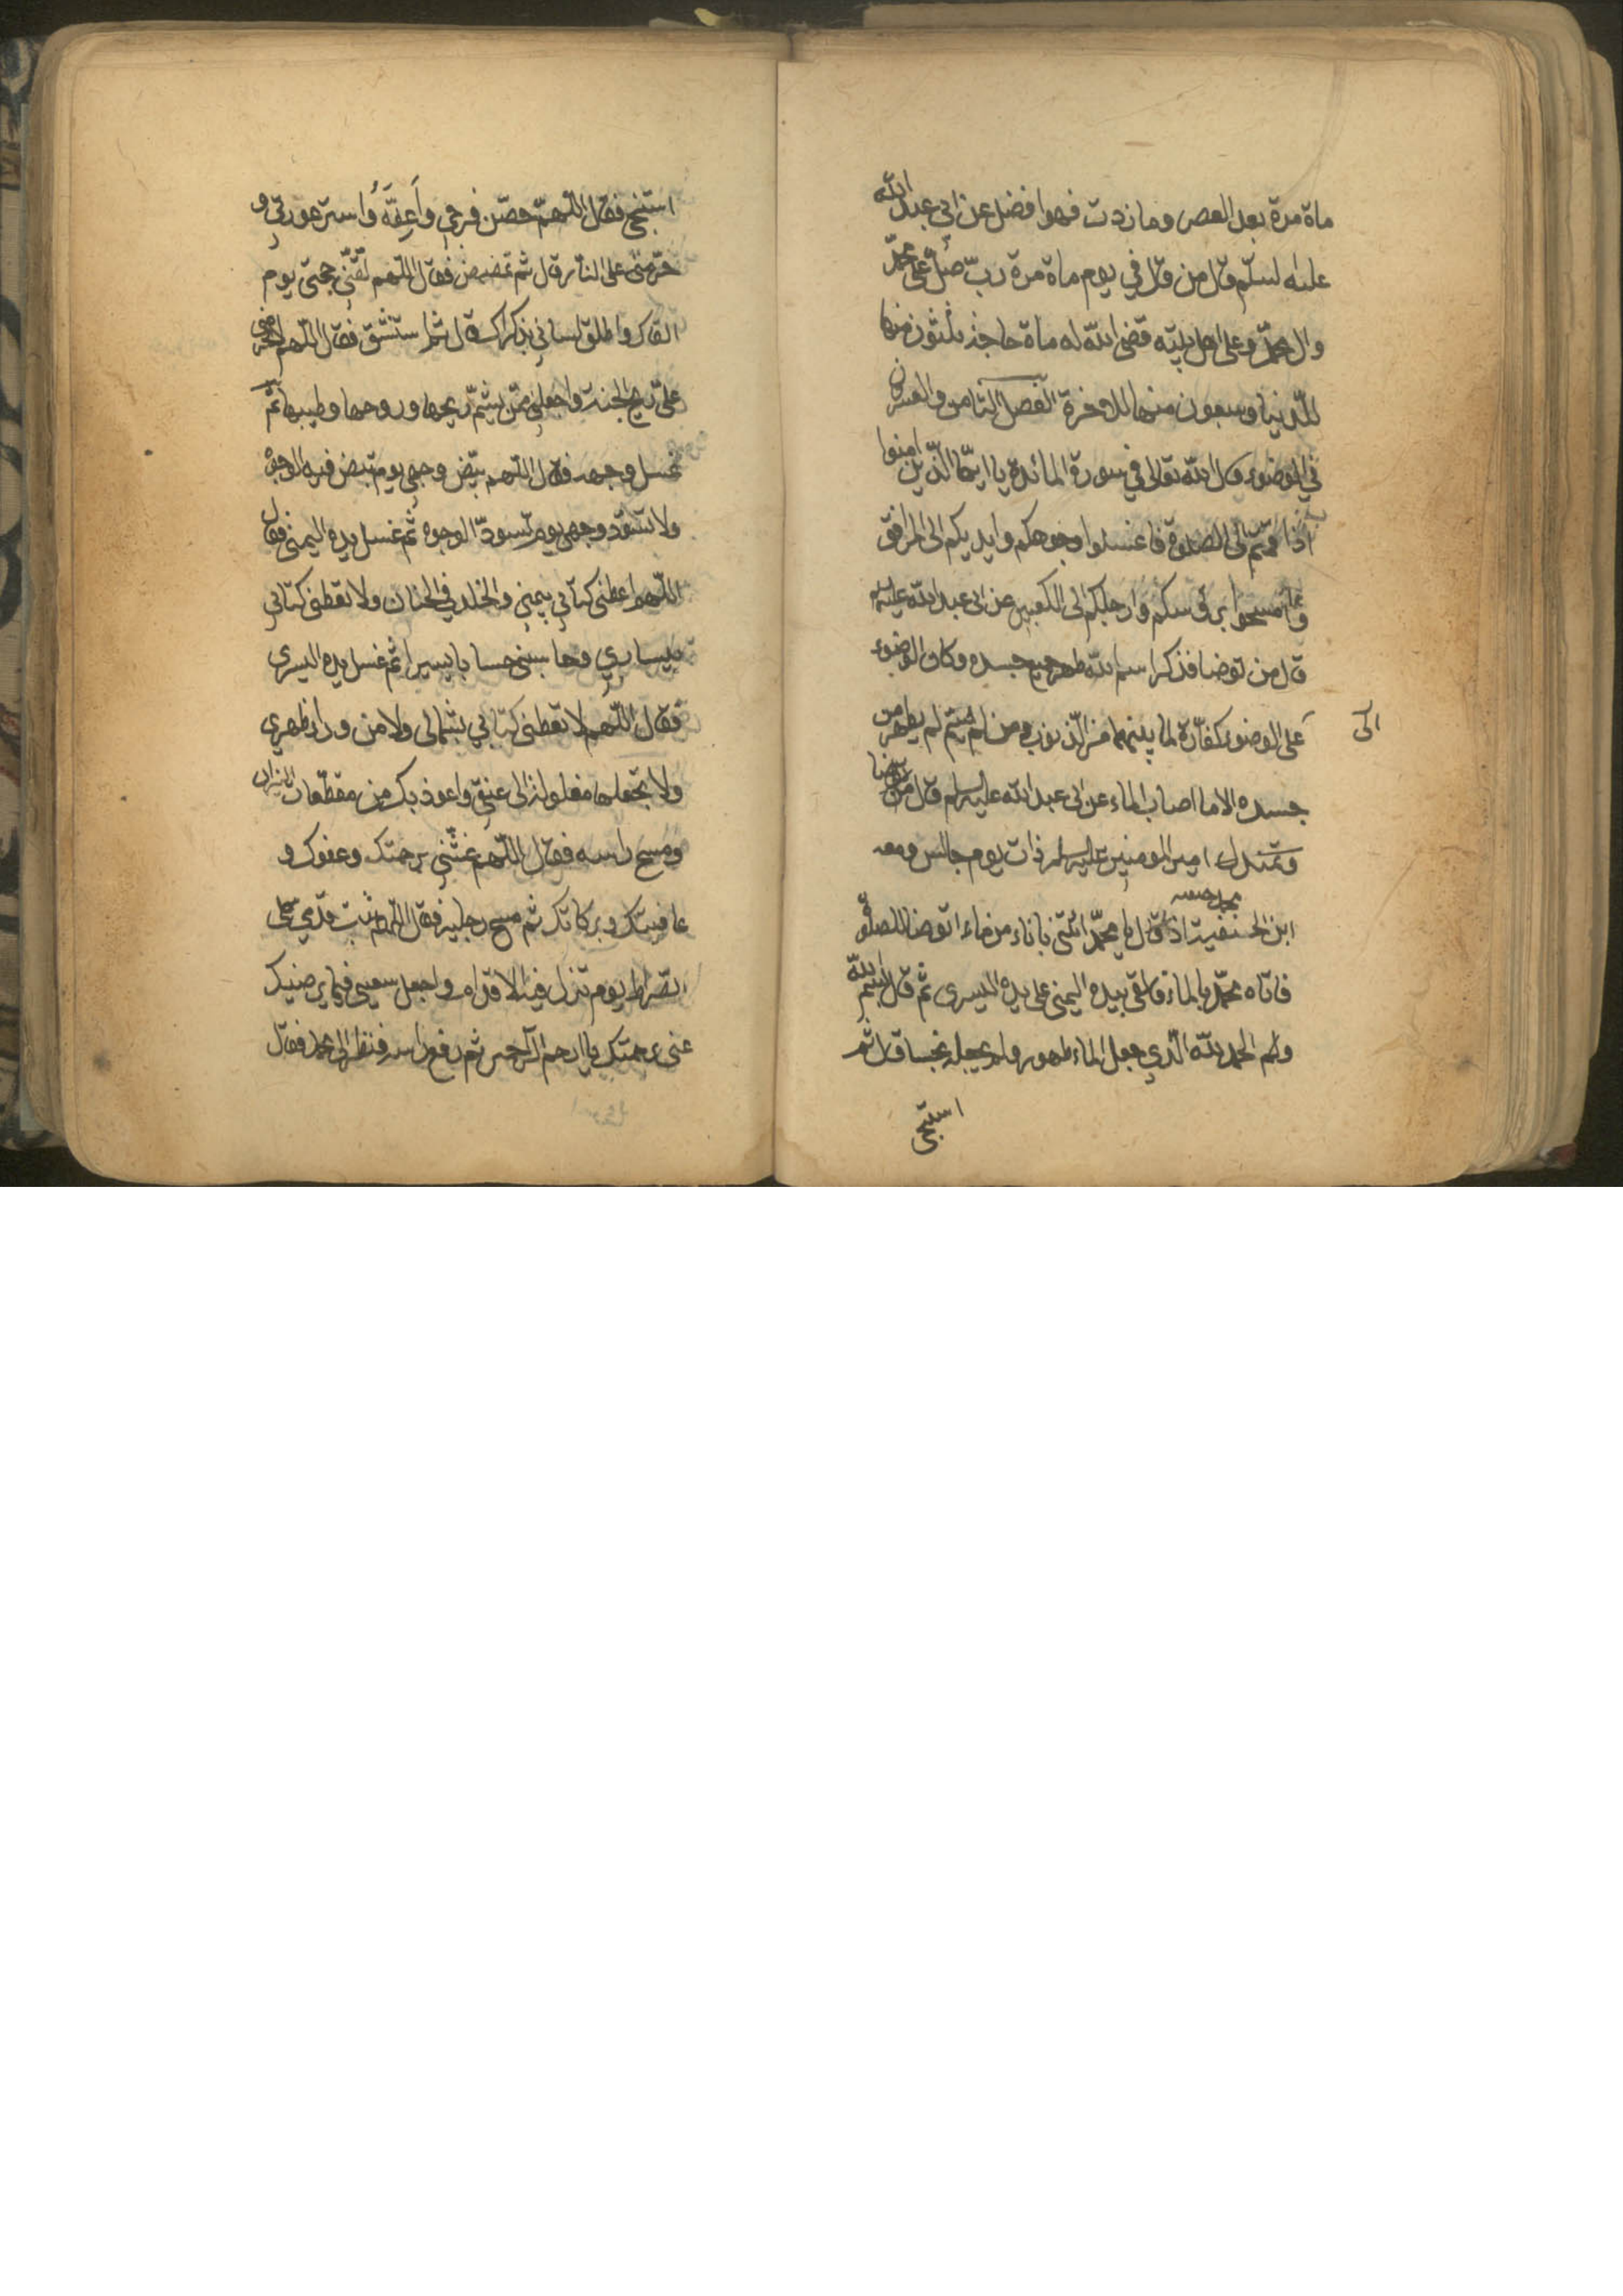 ماة مرة بعد العصر وما زدت فهو افضل عن ابي عبد الله
عليه لسلم قال من قال في يوم ماة مرة رب صل على محمد
وال محمد وعلى اهل بيته قضى الله له ماة حاجة ثلثون منها
للدنيا وسبعون منها للاخرة الفصل الثامن والعشرون
في الوضوء قال الله تعالى في سورة المائدة يا ايها الذين امنوا
اذا قمتم الى الصلوة فاغسلوا وجوهكم وايديكم الى المرافق
وامسحوا برؤسكم وارجلكم الى الكعبين عن ابي عبد الله عليه
قال من توضا فذكر اسم الله طهر جميع جسده وكان الوضوء
على الوضوء كفارة لما بينهما من الذنوب ومن لم يسم لم يطهر من
الى
جسده الا ما اصاب الماء عن ابي عبد الله عليه لسلم قال من توضا
وتمندل امير المومنين عليه لسلم ذات يوم جالس ومعه
محمد
ابن الحنفية اذ قال يا محمد ائتني باناء من ماء اتوضا للصلوة
فاتاه محمد بالماء فالقى بيده اليمنى على يده اليسرى ثم قال بسم الله
والحمد لله الذي جعل الماء طهورا ولم يجعله نجسا قال ثم
استنجى
استنجى فقال اللهم حصن فرجي واعفه واستر عورتي و
حرمني على النار قال ثم تمضمض فقال اللهم لقني حجتي يوم
القاك واطلق لساني بذكراك قال ثم استنشق فقال اللهم لا تحرم
على ريح الجنة واجعلني ممن يشم ريحها وروحها وطيبها ثم
غسل وجهه فقال اللهم بيض وجهي يوم تبيض فيه الوجوه
ولا تسود وجهي يوم تسود الوجوه ثم غسل يده اليمنى فقال
اللهم اعطني كتابي بيمني والخلد في الجنان ولا تعطني كتابي
بيساري وحاسبني حسابا يسيرا ثم غسل يده اليسرى
فقال اللهم لا تعطني كتابي بشمالى ولا من وراء ظهري
ولا تجعلها مغلولة الى عنقي واعوذ بك من مقطعات النيران
ومسح راسه فقال اللهم غشني برحمتك وعفوك و
عافيتك وبركاتك ثم مسح رجليه فقال اللهم ثبت قدمي على
الصراط يوم تزل فيه الاقدام واجعل سعيي فيما يرضيك
عني برحمتك يا ارحم الراحمين ثم رفع راسه فنظر الى محمد فقال